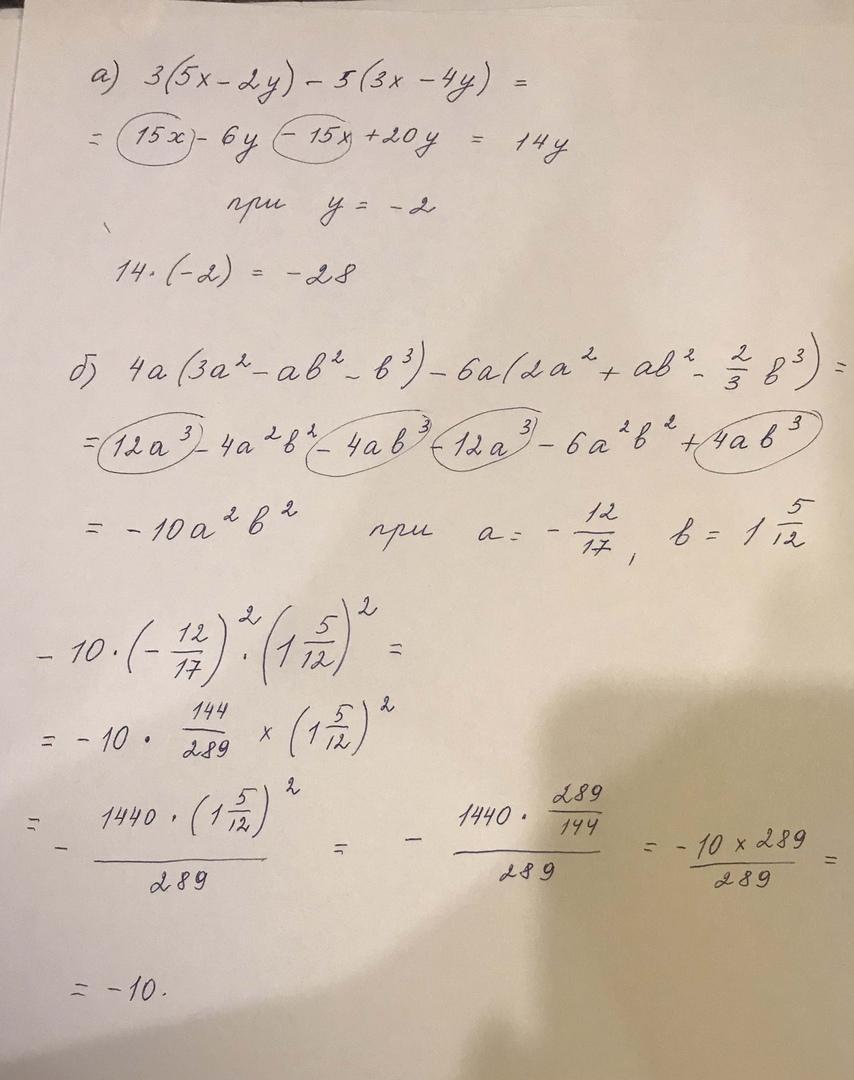 а) 3(5x - 2y) - 5(3x - 4y) =
= 15x - 6y - 15x + 20y = 14y
при y = -2
14·(-2) = -28
б) 4a(3a² - ab² - b³) - 6a(2a² + ab² - 2/3 b³) =
= 12a³ - 4a²b² - 4ab³ - 12a³ - 6a²b² + 4ab³
= -10a²b² при a = - 12/17, b = 1 5/12
- 10·(- 12/17)²·(1 5/12)² =
= -10 · 144/289 × (1 5/12)²
= - 1440·(1 5/12)² / 289 = - 1440· 289/144 / 289 = - 10 × 289 / 289 =
= -10.